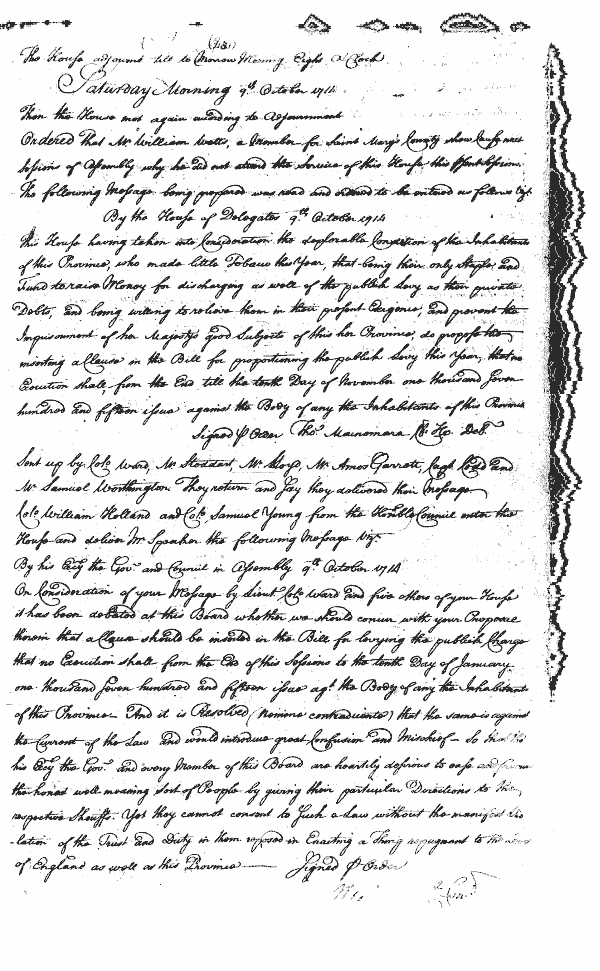 The House adjourns till to Morrow Morning Eight a Clock
Saturday Morning 9th October 1714
Then the House met again according to Adjournment
Ordered That Mr William Watts, a Member for Saint Mary's County show Cause next
Sessions of Assembly why he did not attend the Service of this House this Session.
The following Message being prepared was read and ordered to be entered as follows
By the House of Delegates 9th October 1714
This House having taken into Consideration the deplorable Condition of the Inhabitants
of this Province, who made little Tobacco this Year, that being their only Staple and
Fund to raise Money for discharging as well of the publick Levy as their private
Debts, and being willing to relieve them in their present Exigence, and prevent the
Imprisonment of her Majestys good Subjects of this her Province, do propose the
inserting a Clause in the Bill for proportioning the publick Levy this Year, that no
Execution shall, from the End till the tenth Day of November one thousand Seven
hundred and fifteen issue against the Body of any the Inhabitants of this Province
Signed P Order Thos Macnemara Cl. Ho. Delts
Sent up by Colo Ward, Mr Stoddart, Mr Kloyd, Mr Amos Garrett, Capt and
Mr Samuel Worthington. They return and Say they delivered their Message
Colo William Holland and Colo Samuel Young from the Honble Council enter the
House and deliver Mr Speaker the following Message Vizt
By his Excy the Govr and Council in Assembly 9th October 1714
On Consideration of your Message by Lieut Colo Ward and five others of your House
it has been debated at this Board whether we should concur with your Proposal
therein that a Clause should be inserted in the Bill for levying the publick Charge
that no Execution shall from the End of this Sessions to the tenth Day of January
one thousand Seven hundred and fifteen issue agt the Body of any the Inhabitants
of this Province And it is Resolved (Nemine contradicente) that the same is against
the Current of the Law and would introduce great Confusion and Mischief - So that tho
his Excy the Govr and every Member of this Board are heartily desirous to ease and
the honest well meaning Sort of People by giving their particular Directions to the
respective Sheriffs. Yet they cannot consent to Such a Law without the manifest Vio
-lation of the Trust and Duty in them reposed in Enacting a Thing repugnant to the Laws
of England as well as this Province Signed P Order